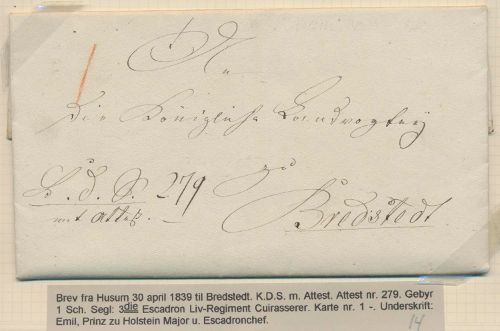 An
die Königliche Landvogtey
zu
K. d. S. 279
mit Attest.
Bredstedt
Brev fra Husum 30 april 1839 til Bredstedt. K.D.S. m. Attest. Attest nr. 279. Gebyr
1 Sch. Segl: 3die Escadron Liv-Regiment Cuirasserer. Karte nr. 1 -. Underskrift:
Emil, Prinz zu Holstein Major u. Escadronchef.
14